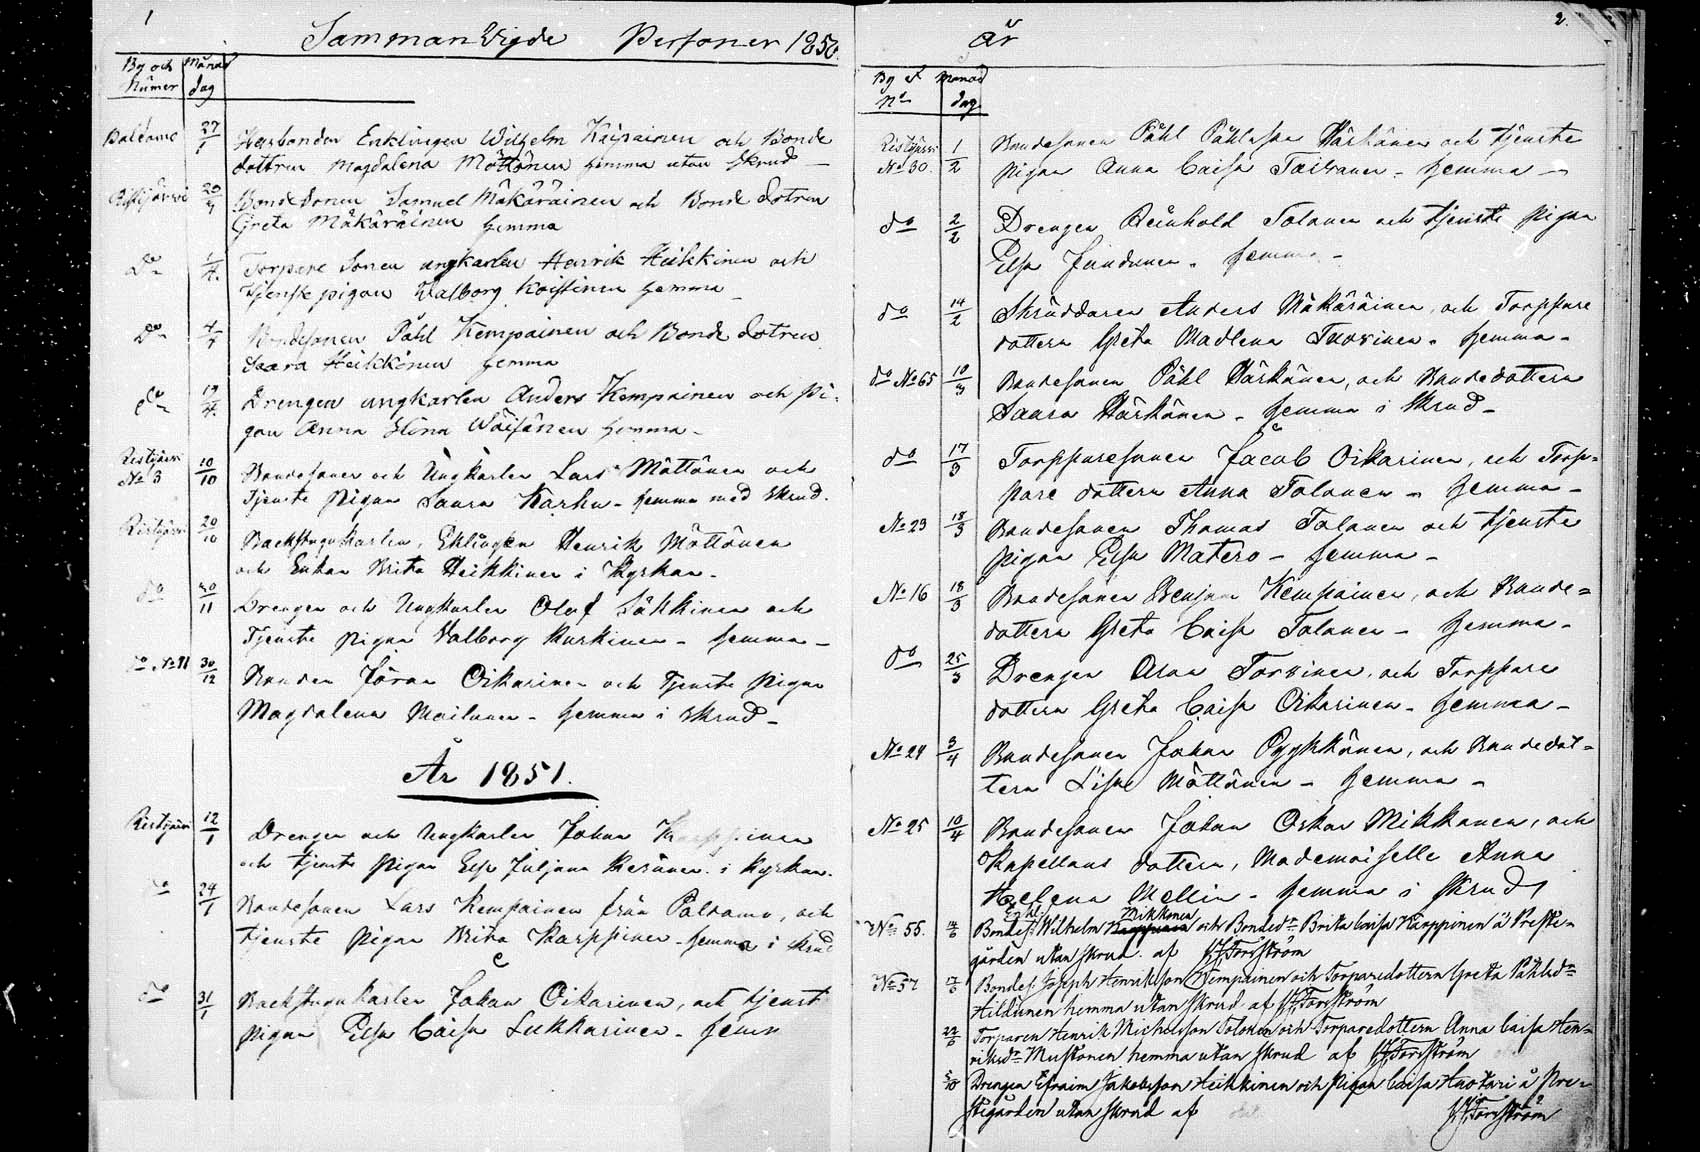 1
Sammanvigde Personer 1850.
By och Månad
Numer dag
Paldamo 27/1 Husbonden Enklingen Wilhelm Keipainen och Bonde
dottren Magdalena Möttönen hemma utan skrud
Ristijärvi 20/4 Bonde Sonen Samuel Mäkäräinen och Bonde dotren
Greta Mäkäräinen hemma
Do /4. Torpare Sonen ungkarlen Henrik Heikkinen och
tjenste pigan Walborg Koistinen hemma
Do Bondesonen Påhl Kempainen och Bonde dotren
Saara Heikkinen hemma
Do 19/4. Drengen ungkarlen Anders Kempainen och Pi-
gan Anna Stina Wäisänen hemma
Ristijärvi
No 3 10/10 Bondesonen och Ungkarlen Lars Möttönen och
Tjenste Pigan Saara Karhu - hemma med skrud.
Ristijärvi 20/10 Backstugukarlen, Enklingen Henrik Möttönen
och Enkan Brita Heikkinen i Kyrkan.
do 30/11 Drengen och Ungkarlen Olof Säkkinen och
Tjenste pigan Valborg Kurkinen - hemma -
do. No 11 30/12 Bonden Jöran Oikarinen och Tjenste Pigan
Magdalena Mailanen - hemma i skrud -
År 1851.
Ristijärvi 12/1 Drengen och Ungkarlen Johan
och tjenste Pigan Elsa Juliana Keränen i Kyrkan.
do 24/1 Bondesonen Lars Kempainen från Paldamo, och
tjenste Pigan Brita Karppinen - hemma i skrud
do 31/1 Backstugukarlen Johan Oikarinen, och tjenst
pigan Elsa Caisa Lukkarinen - hem
2.
år
By et Monad
No dag
Ristijärvi
No 30. 1/2 Bondesonen Påhl Påhlsson Härkönen och tjenste
pigan Anna Caisa Taivanen - hemma -
do 2/2 Drengen Reinhold Tolonen och tjenste Pigan
Elsa Juntunen. hemma -
do 14/2 Skräddaren Anders Mäkäräinen, och Torppare
dottern Greta Madlena Tuovinen. hemma -
do No 65 10/3 Bondesonen Påhl Härkönen, och Bondedottern
Saara Härkönen - hemma i skrud -
do 17/3 Torpparesonen Jacob Oikarinen, och Torp=
pare dottern Anna Tolonen - hemma -
No 23 18/3 Bondesonen Thomas Tolonen och tjenste
pigan Elsa Matero - hemma -
No 16 18/3 Bondesonen Benjam Kempainen, och Bonde=
dottern Greta Caisa Tolonen - hemma -
do 25/3 Drengen Aron Torvinen, och Torppare
dottern Greta Caisa Oikarinen - hemma -
No 24 3/4 Bondesonen Johan Pyykkönen, och Bondedot=
tern Lisa Möttönen - hemma -
No 25 10/4 Bondesonen Johan Oskar Mikkonen, och
Kapellans dottern, Mademoiselle Anna
Helena Mellin - hemma i skrud
Enkl. Mikkonen
No 55. Bondes: Wilhelm och Bonded:r Brita Caisa Karppinen å Preste-
gården utan skrud. af Forsström
No 57 Bondes: Joseph Henriksson Kempainen och Torparedottern Greta Påhlsdr
Hildunen hemma utan skrud af Forsström
22/6 Torparen Henrik Michelsson Tolonen och Torparedottern Anna Caisa Hen-
riksdr Mustonen hemma utan skrud af Forsström
5/10 Drengen Efraim Jakobsson Heikkinen och Pigan Caisa Huotari å Pre-
stgården utan skrud af Forsström